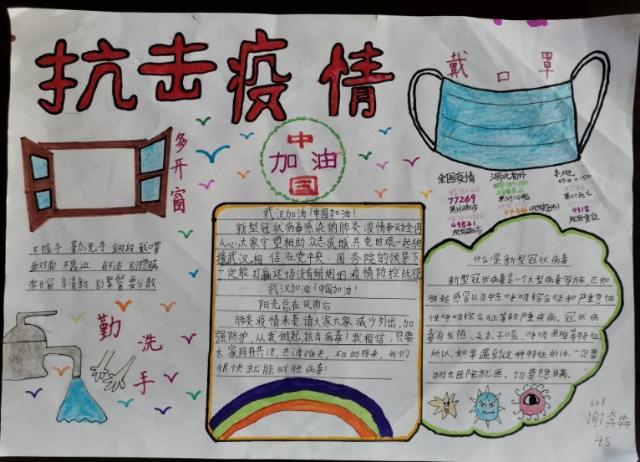 抗击疫情
戴口罩
多开窗
中
加油
国
全国疫情
湖北省外
本地
77269
49824
4915
武汉加油！中国加油！
新型冠状病毒感染的肺炎疫情牵动全国
人心,大家守望相助众志成城共克时艰一起驰
援武汉相信在党中央、国务院的领导下
一定能打赢这场没有硝烟的疫情防控战役
武汉加油！中国加油！
阳光总在风雨后
肺炎疫情来袭,请大家减少外出,加
强防护,从我做起,抗击病毒！我相信,只要
大家同舟共济,共渡难关,不久的将来,我们
很快就能战胜病毒！
不握手 勤洗手 戴口罩
面对面 不靠近 别隐瞒
常开窗 多清新 要分散
勤洗手
什么是新型冠状病毒
新型冠状病毒是一个大型病毒家族,已知
可引起感冒以及中东呼吸综合征和严重急性
性呼吸综合征等较严重疾病。冠状病
毒有发热、乏力、干咳、呼吸困难等特征
所以,如果遇到这种特征的话,一定要
及时去医院就医。切莫隐瞒。
608
45